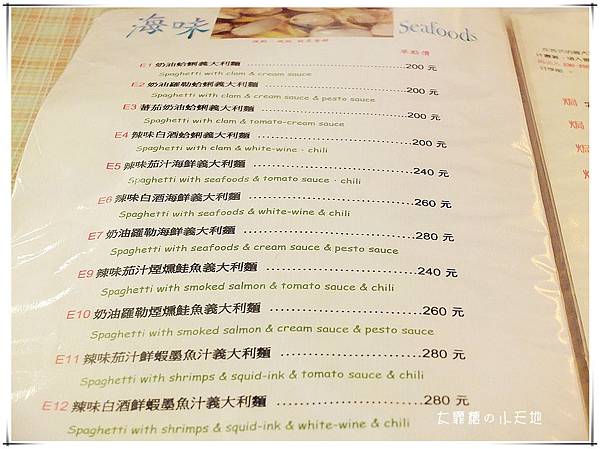 海味 Seafoods
單點價
E1 奶油蛤蜊義大利麵 200 元
Spaghetti with clam & cream sauce
E2 奶油羅勒蛤蜊義大利麵 200 元
Spaghetti with clam & cream sauce & pesto sauce
E3 蕃茄奶油蛤蜊義大利麵 200 元
Spaghetti with clam & tomato-cream sauce
E4 辣味白酒蛤蜊義大利麵 200 元
Spaghetti with clam & white-wine、chili
E5 辣味茄汁海鮮義大利麵 240 元
Spaghetti with seafoods & tomato sauce、chili
E6 辣味白酒海鮮義大利麵 260 元
Spaghetti with seafoods & white-wine & chili
E7 奶油羅勒海鮮義大利麵 280 元
Spaghetti with seafoods & cream sauce & pesto sauce
E9 辣味茄汁煙燻鮭魚義大利麵 240 元
Spaghetti with smoked salmon & tomato sauce & chili
E10 奶油羅勒煙燻鮭魚義大利麵 260 元
Spaghetti with smoked salmon & cream sauce & pesto sauce
E11 辣味茄汁鮮蝦墨魚汁義大利麵 280 元
Spaghetti with shrimps & squid-ink & tomato sauce & chili
E12 辣味白酒鮮蝦墨魚汁義大利麵 280 元
Spaghetti with shrimps & squid-ink & white-wine & chili